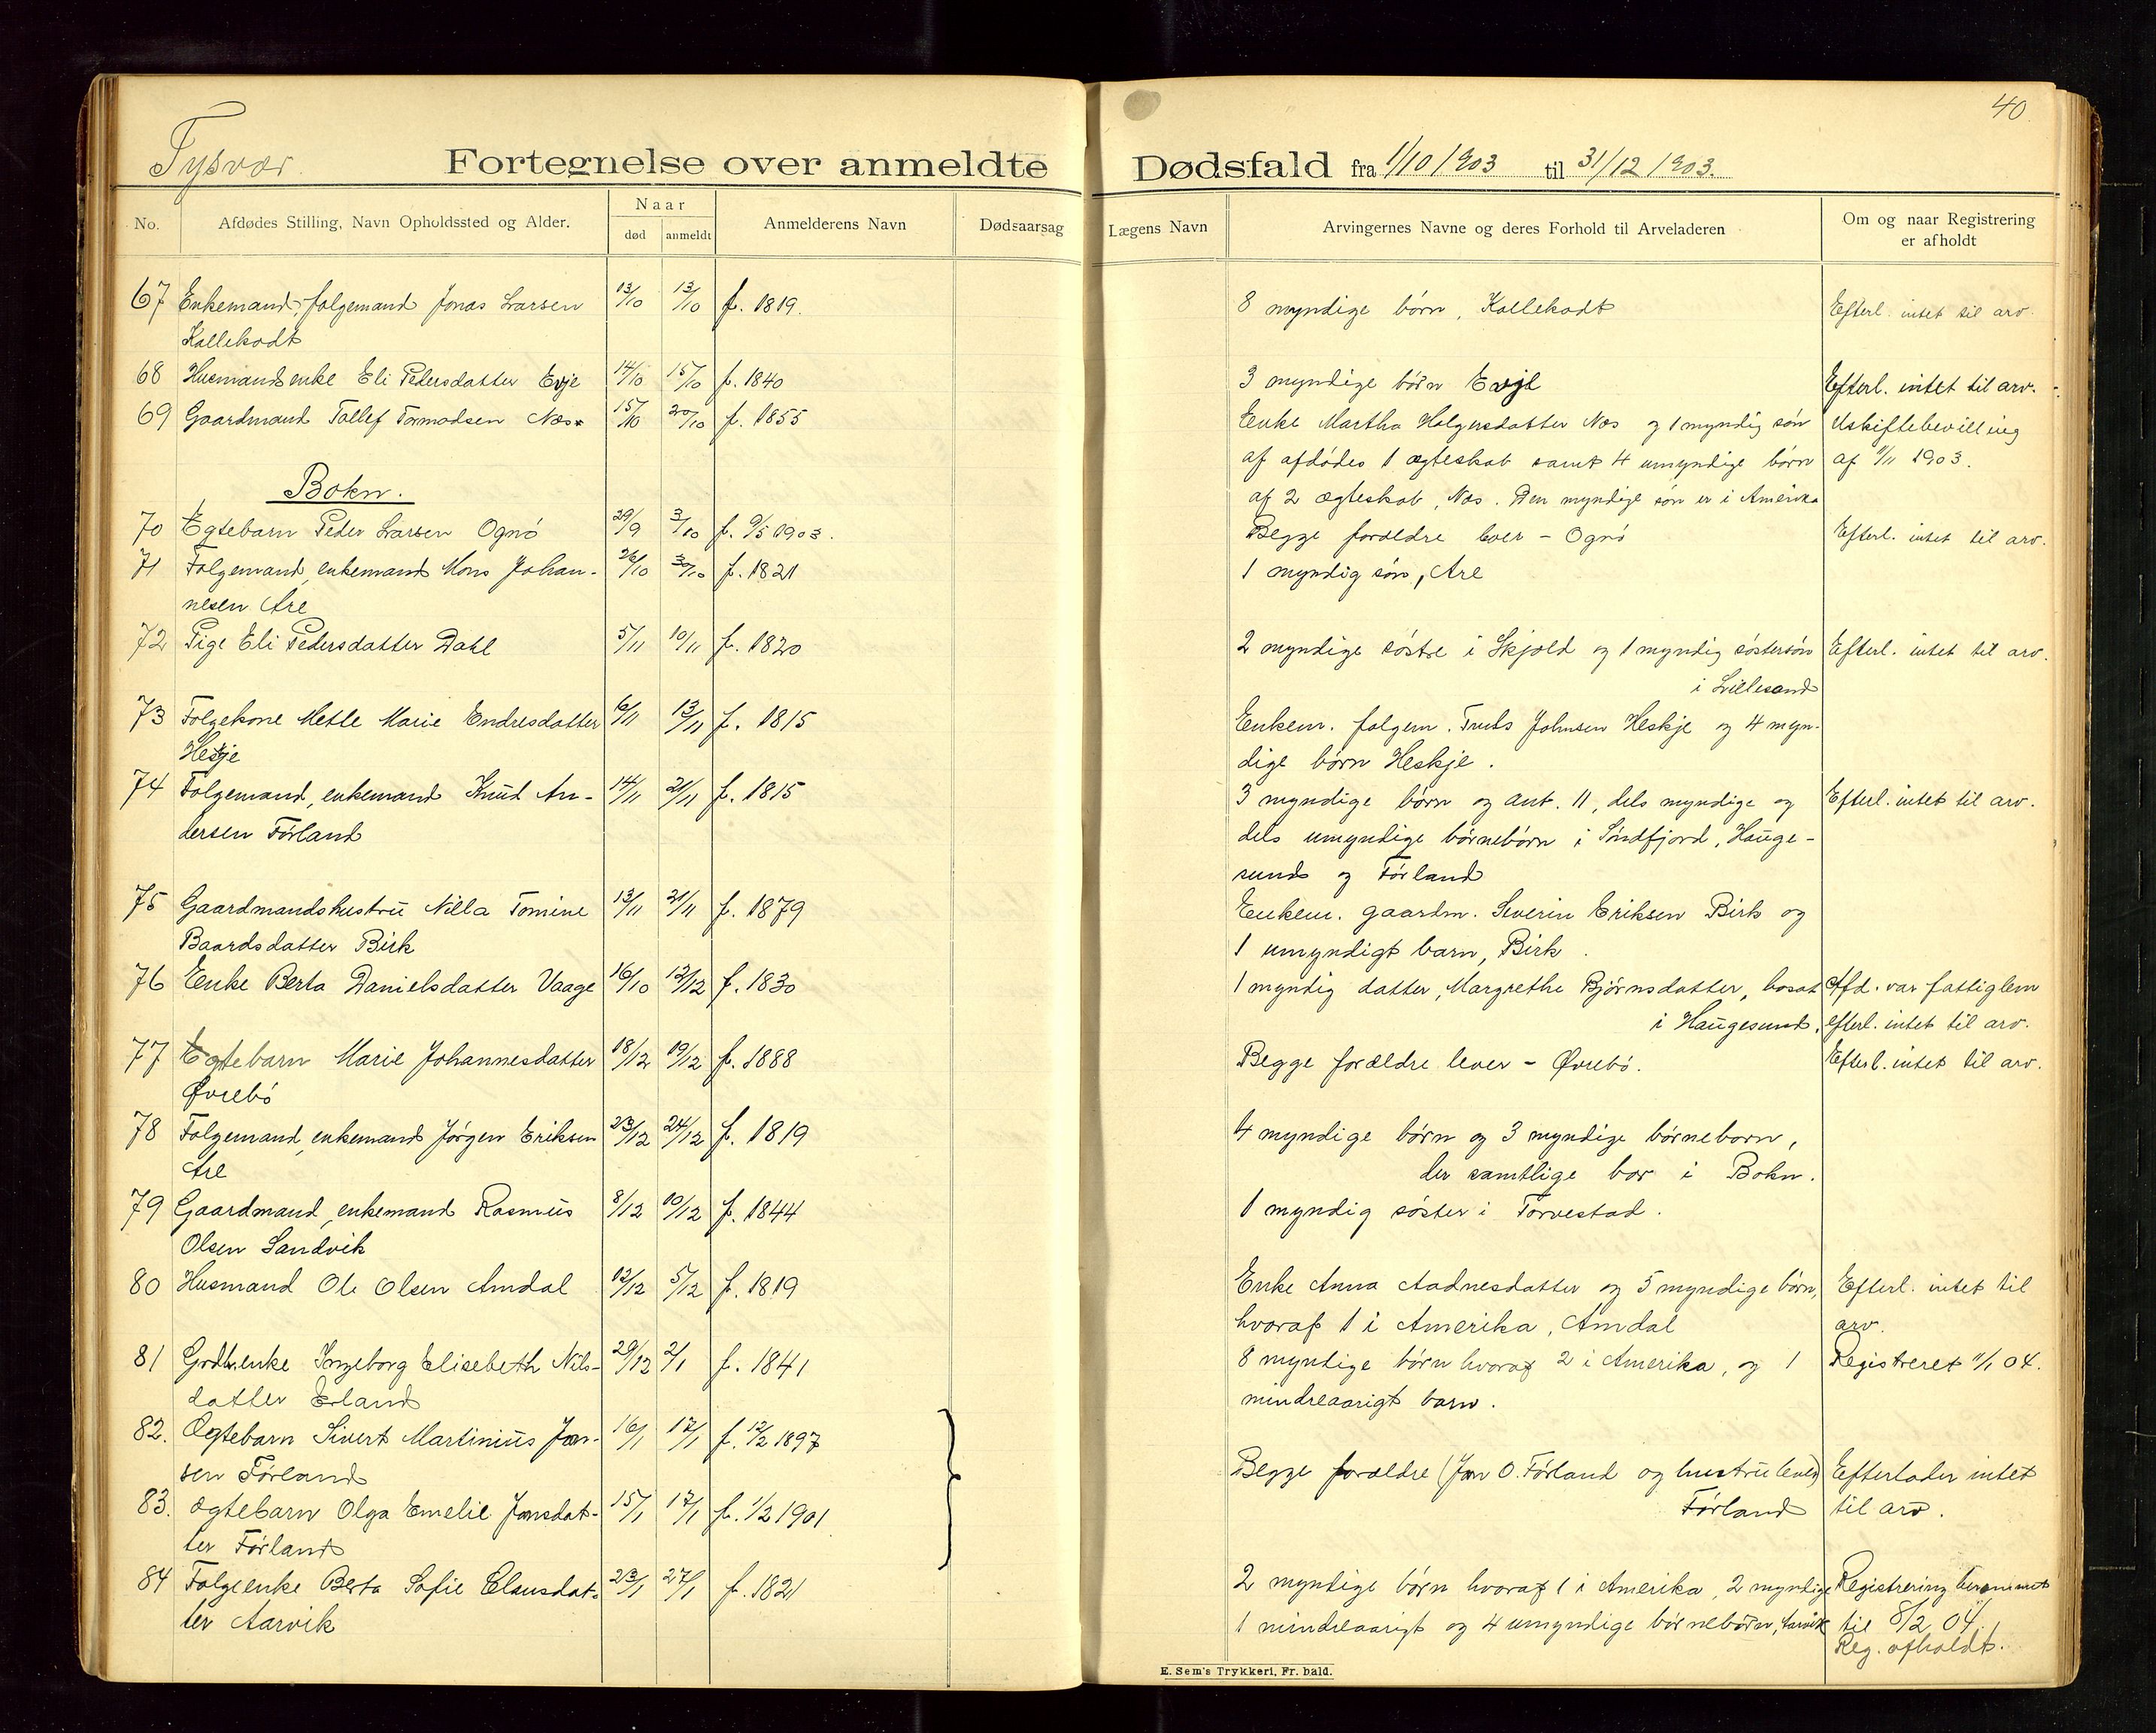 40
Tysvær.
Fortegnelse over anmeldte Dødsfald fra 1/10 1903 til 31/12 1903.
No.
Afdødes Stilling, Navn Opholdssted og Alder.
Naar
død
anmeldt
Anmelderens Navn
Dødsaarsag
Lægens Navn
Arvingernes Navne og deres Forhold til Arveladeren
Om og naar Registrering
er afholdt
67 Enkemand, folgemand Jonas Larsen 13/10 13/10 f. 1819. 8 myndige børn, Kallekodt Efterl. intet til arv.
Kallekodt
68 Husmandsenke Eli Pedersdatter Evje 14/10 15/10 f. 1840 3 myndige børn Evje Efterl. intet til arv.
69 Gaardmand Tollef Tormodsen Næs 15/10 20/10 f. 1855 Enke Martha Holgersdatter Næs og 1 myndig søn Uskiftebevilling
af afdødes 1 ægteskab samt 4 umyndige børn af 11/11 1903.
af 2 ægteskab, Næs. Den myndige søn er i Amerika
Bokn.
70 Egtebarn Peder Larsen Ognø 29/9 3/10 f. 9/5 1903. Begge forældre lever - Ognø Efterl. intet til arv.
71 Folgemand, enkemand Mons Johan- 26/10 30/10 f. 1821 1 myndig søn, Are
nesen Are
72 Pige Eli Pedersdatter Dahl 5/11 10/11 f. 1820 2 myndige søstre i Skjold og 1 myndig søstersøn Efterl. intet til arv.
i Lillesand
73 Folgekone Mette Marie Endresdatter 6/11 13/11 f. 1815 Enkem. folgem. Truls Johnsen Heskje og 4 myn-
Heskje dige børn Heskje.
74 Folgemand, enkemand Knud An- 14/11 21/11 f. 1815 3 myndige børn og ant. 11, dels myndige og Efterl. intet til arv.
dersen Førland dels umyndige børnebørn i Søndfjord, Hauge-
sund og Førland
75 Gaardmandshustru Nilla Tomine 13/11 21/11 f. 1879 Enkem. gaardm. Severin Eriksen Birk og
Baardsdatter Birk 1 umyndigt barn, Birk.
76 Enke Berta Danielsdatter Vaage 16/10 12/12 f. 1830 1 myndig datter, Margrethe Bjørnsdatter, bosat Afd. var fattiglem
i Haugesund. efterl. intet til arv.
77 Egtebarn Marie Johannesdatter 18/12 19/12 f. 1888 Begge forældre lever - Øvrebø. Efterl. intet til arv.
Øvrebø
78 Folgemand, enkemand Jørgen Eriksen 23/12 24/12 f. 1819 4 myndige børn og 3 myndige børneborn,
Are der samtlige bor i Bokn.
79 Gaardmand, enkemand Rasmus 8/12 10/12 f. 1844 1 myndig søster i Torvestad.
Olsen Sandvik
80 Husmand Ole Olsen Amdal 12/12 5/12 f. 1819 Enke Anna Aadnesdatter og 5 myndige børn, Efterl. intet til
hvoraf 1 i Amerika, Amdal arv.
81 Grdbr.enke Ingeborg Elisebeth Nils- 29/12 2/1 f. 1841 8 myndige børn hvoraf 2 i Amerika, og 1 Registreret 11/1 04.
datter Erland mindreaarigt barn.
82. Ægtebarn Sivert Martinius Jan- 16/1 17/1 f. 12/2 1897
sen Førland Begge forældre (Jan O. Førland og hustru lever) Efterlader intet
83. Ægtebarn Olga Emelie Jansdat- 15/1 17/1 f. 1/2 1901 Førland til arv.
ter Førland
84 Folgeenke Berta Sofie Clausdat- 23/1 27/1 f. 1821 2 myndige børn hvoraf 1 i Amerika, 2 myndige Registrering berammet
ter Aarvik 1 mindreaarigt og 4 umyndige børnebørn, Aarvik til 8/2 04.
Reg. afholdt.
E. Sem's Trykkeri, Fr.hald.